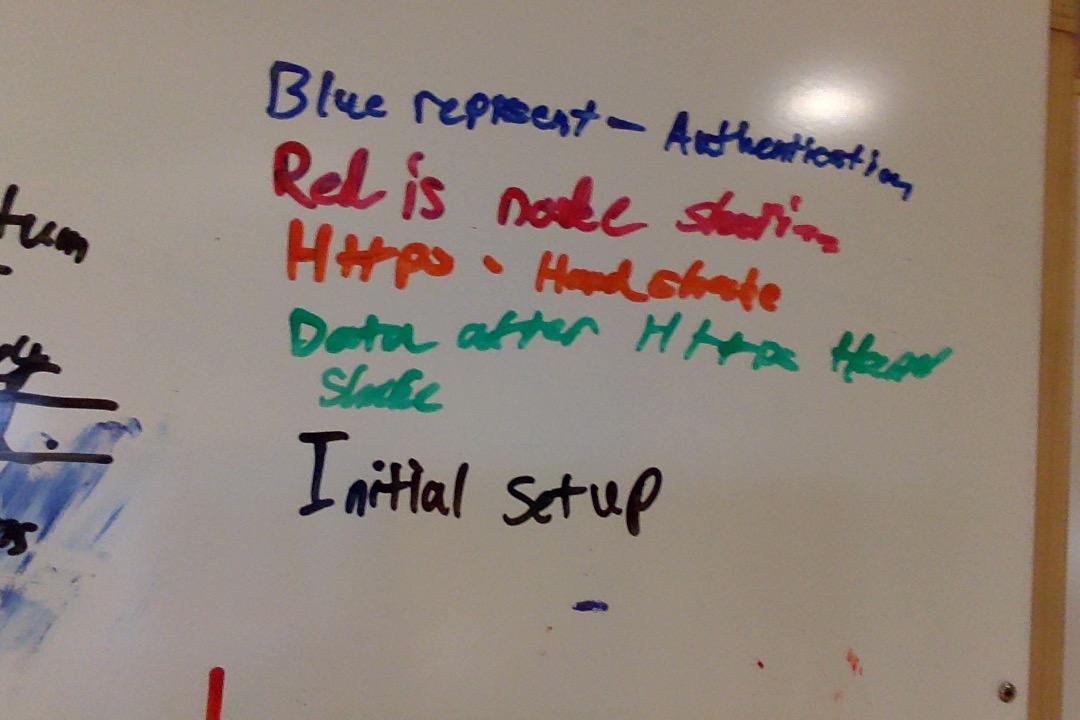 Blue represent - Authentication
Red is node sharing
HTTPS . Handshake
Data after HTTPS Hand
shake
tum
Initial setup